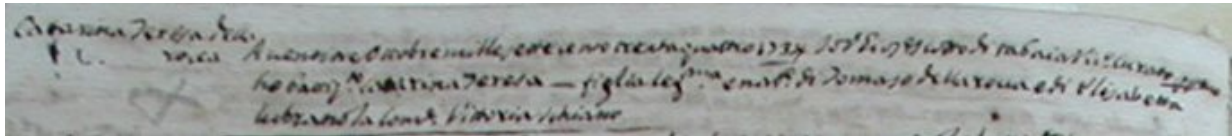 Catarina Teresa della
roca A venti ne Ottobre mille sette cento trenta quattro 1734 Io D. Gio: di Curato
ho batt.to Catarina Teresa — figlia leg.ma e nat.le di Tomaso della roca e di Elisabetta
lubrano la Com.e Vittoria Schiano